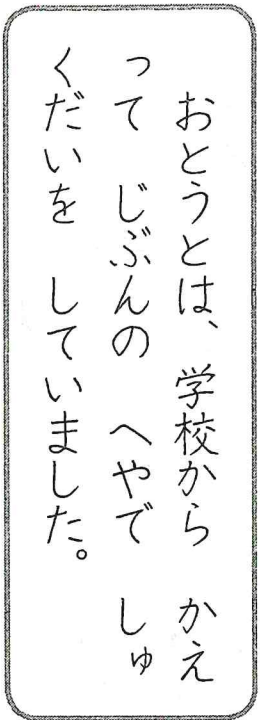 おとうとは、 学校から かえ
って じぶんの へやで しゅ
くだいを していました。